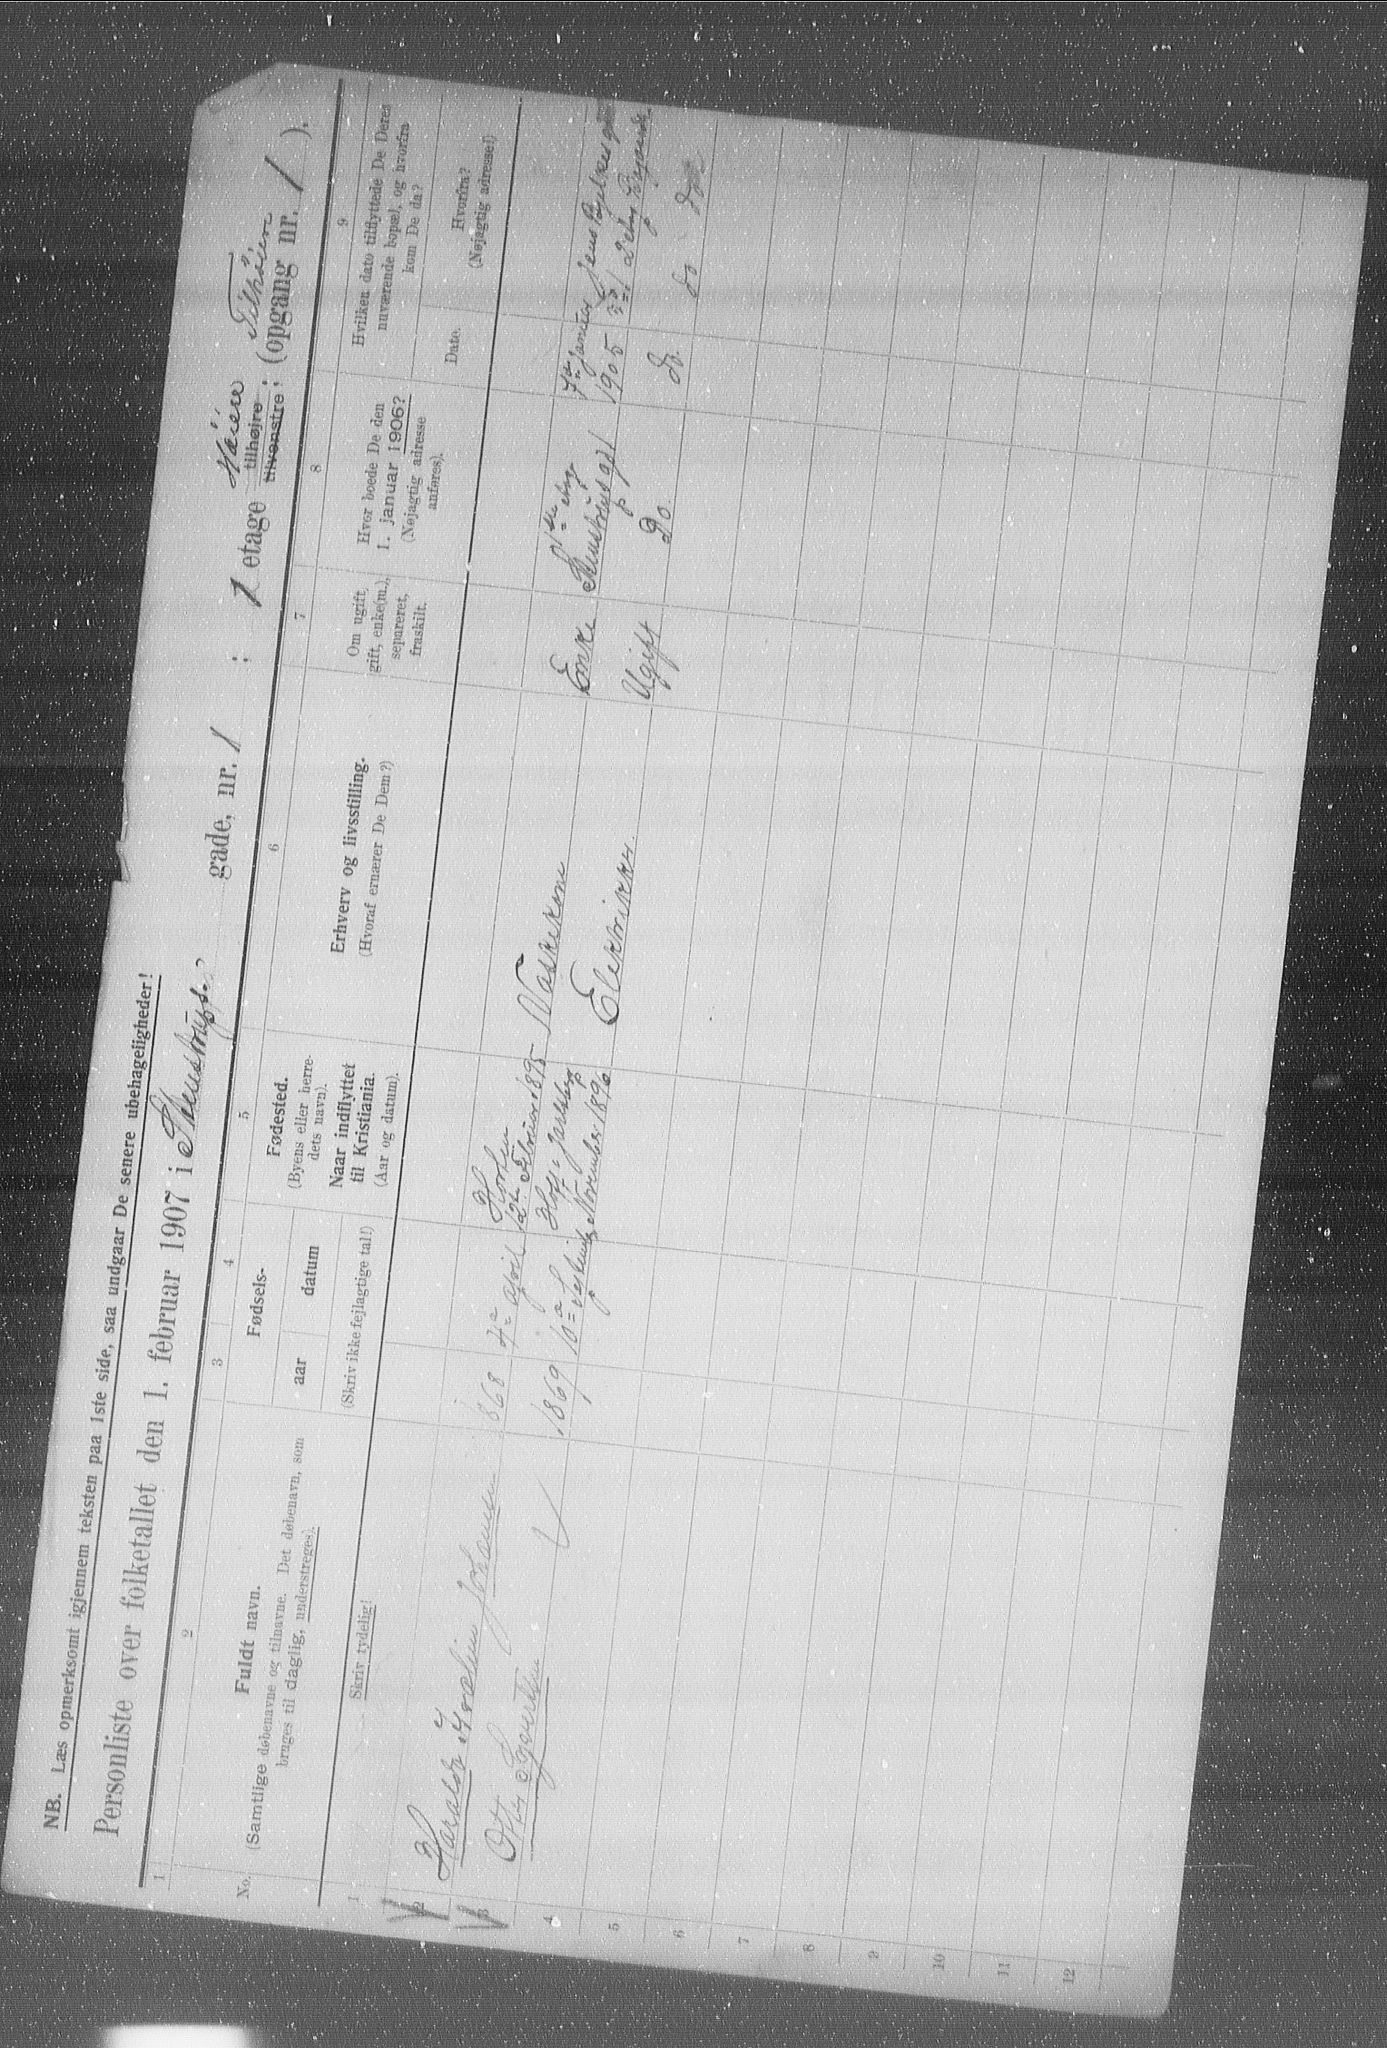 NB. Læs opmerksomt igjennem teksten paa 1ste side, saa undgaar De senere ubehageligheder!
Personliste over folketallet den 1. februar 1907 i Stenstrups gade, nr. 1 ; 1 etage tilhøjre, tilvenstre, (opgang nr. 1 ).
Tilhøire
1
2
3
4
5
6
7
8
9
No.
Fuldt navn.
(Samtlige døbenavne og tilnavne. Det døbenavn, som
bruges til daglig, understreges).
Fødsels-
aar
datum
Fødested.
(Byens eller herre-
dets navn).
Naar indflyttet
til Kristiania.
(Aar og datum).
Erhverv og livsstilling.
(Hvoraf ernærer De Dem?)
Om ugift,
gift, enke(m.),
separeret,
fraskilt.
Hvor boede De den
1. januar 1906?
(Nøjagtig adresse
anføres).
Hvilken dato tilflyttede De Deres
nuværende bopæl, og hvorfra
kom De da?
Date.
Hvorfra?
(Nøjagtig adresse!)
Skriv tydelig!
(Skriv ikke fejlagtige tal!)
1
2
1868
4de april
12te Februar 1895
Vaskekone
Enke
1ste etg
7de Januar
1905
3
Otto
1869
10de September
November 1896
Elektriker.
Ugift
Do.
do.
do
4
5
6
7
8
9
10
11
12